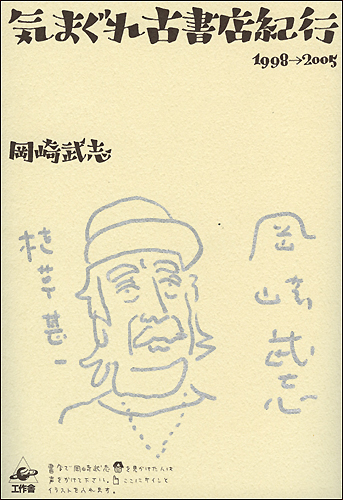 気まぐれ古書店紀行
1998→2005
岡崎武志
岡崎武志
植草甚一
岡崎武志 を見かけた人は
声をかけて下さい。ここにサインと
イラストを入れます。
工作舎